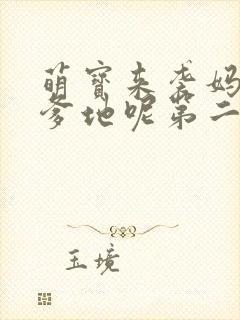 萌宝来袭妈
爹地呢第二
玉境